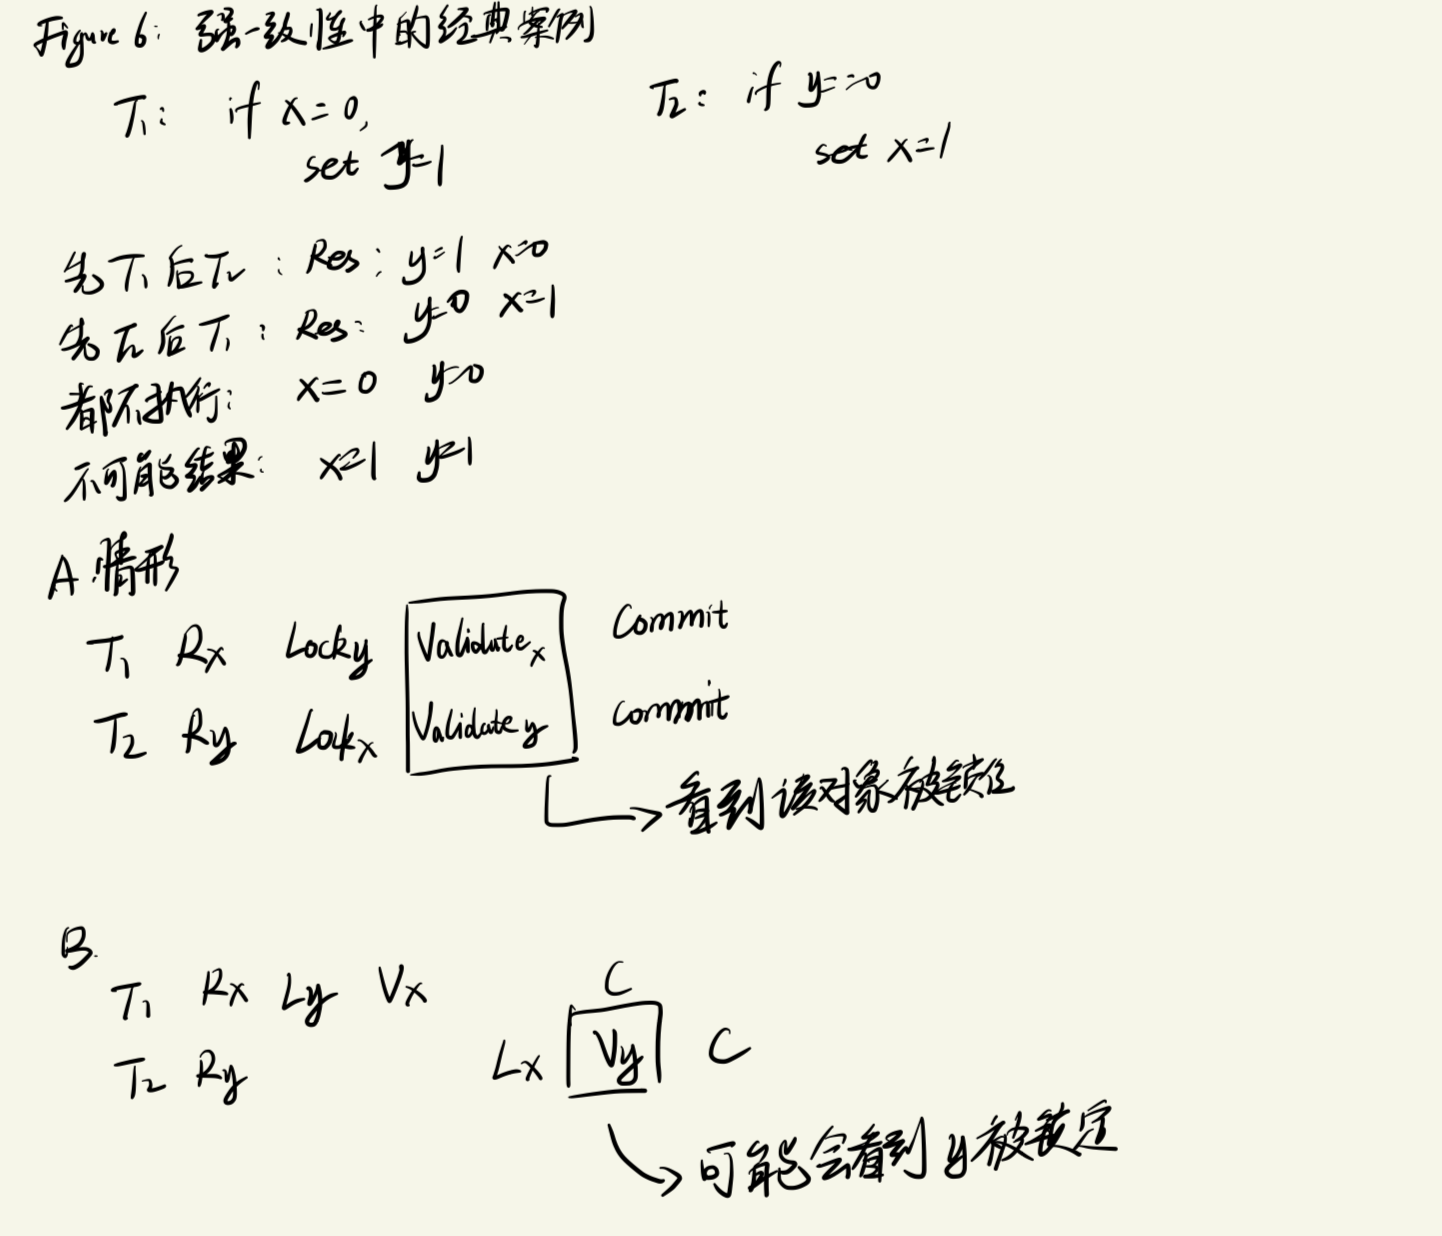 Figure 6: 强一致性中的经典案例
T1: if x=0, T2: if y=0
set y=1 set x=1
先T1后T2: Res: y=1 x=0
先T2后T1: Res: y=0 x=1
都不执行: x=0 y=0
不可能结果: x=1 y=1
A.情形
T1 Rx Locky Validatex Commit
T2 Ry Lockx Validatey Commit
看到该对象被锁住
B.
T1 Rx Ly Vx C
T2 Ry Lx Vy C
可能会看到y被锁定